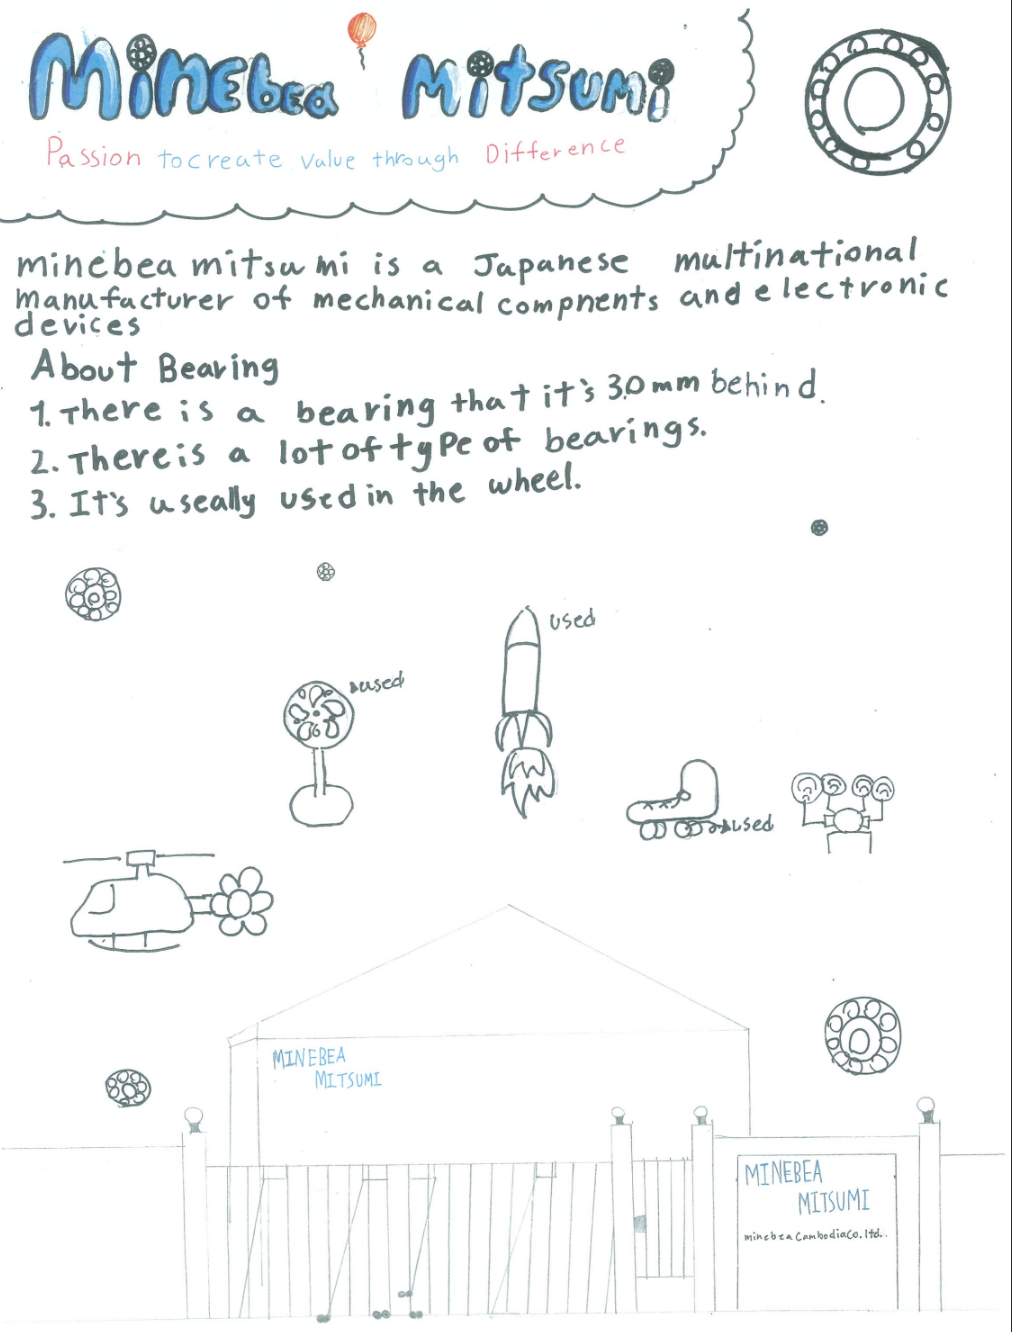 Minebea Mitsumi
Passion to create value through Difference
minebea mitsumi is a Japanese multinational
manufacturer of mechanical compnents and electronic
devices
About Bearing
1. There is a bearing that it's 3.0 mm behind.
2. There is a lot of type of bearings.
3. It's useally used in the wheel.
used
used
used
MINEBEA
MITSUMI
MINEBEA
MITSUMI
minebea Cambodia Co. ltd..